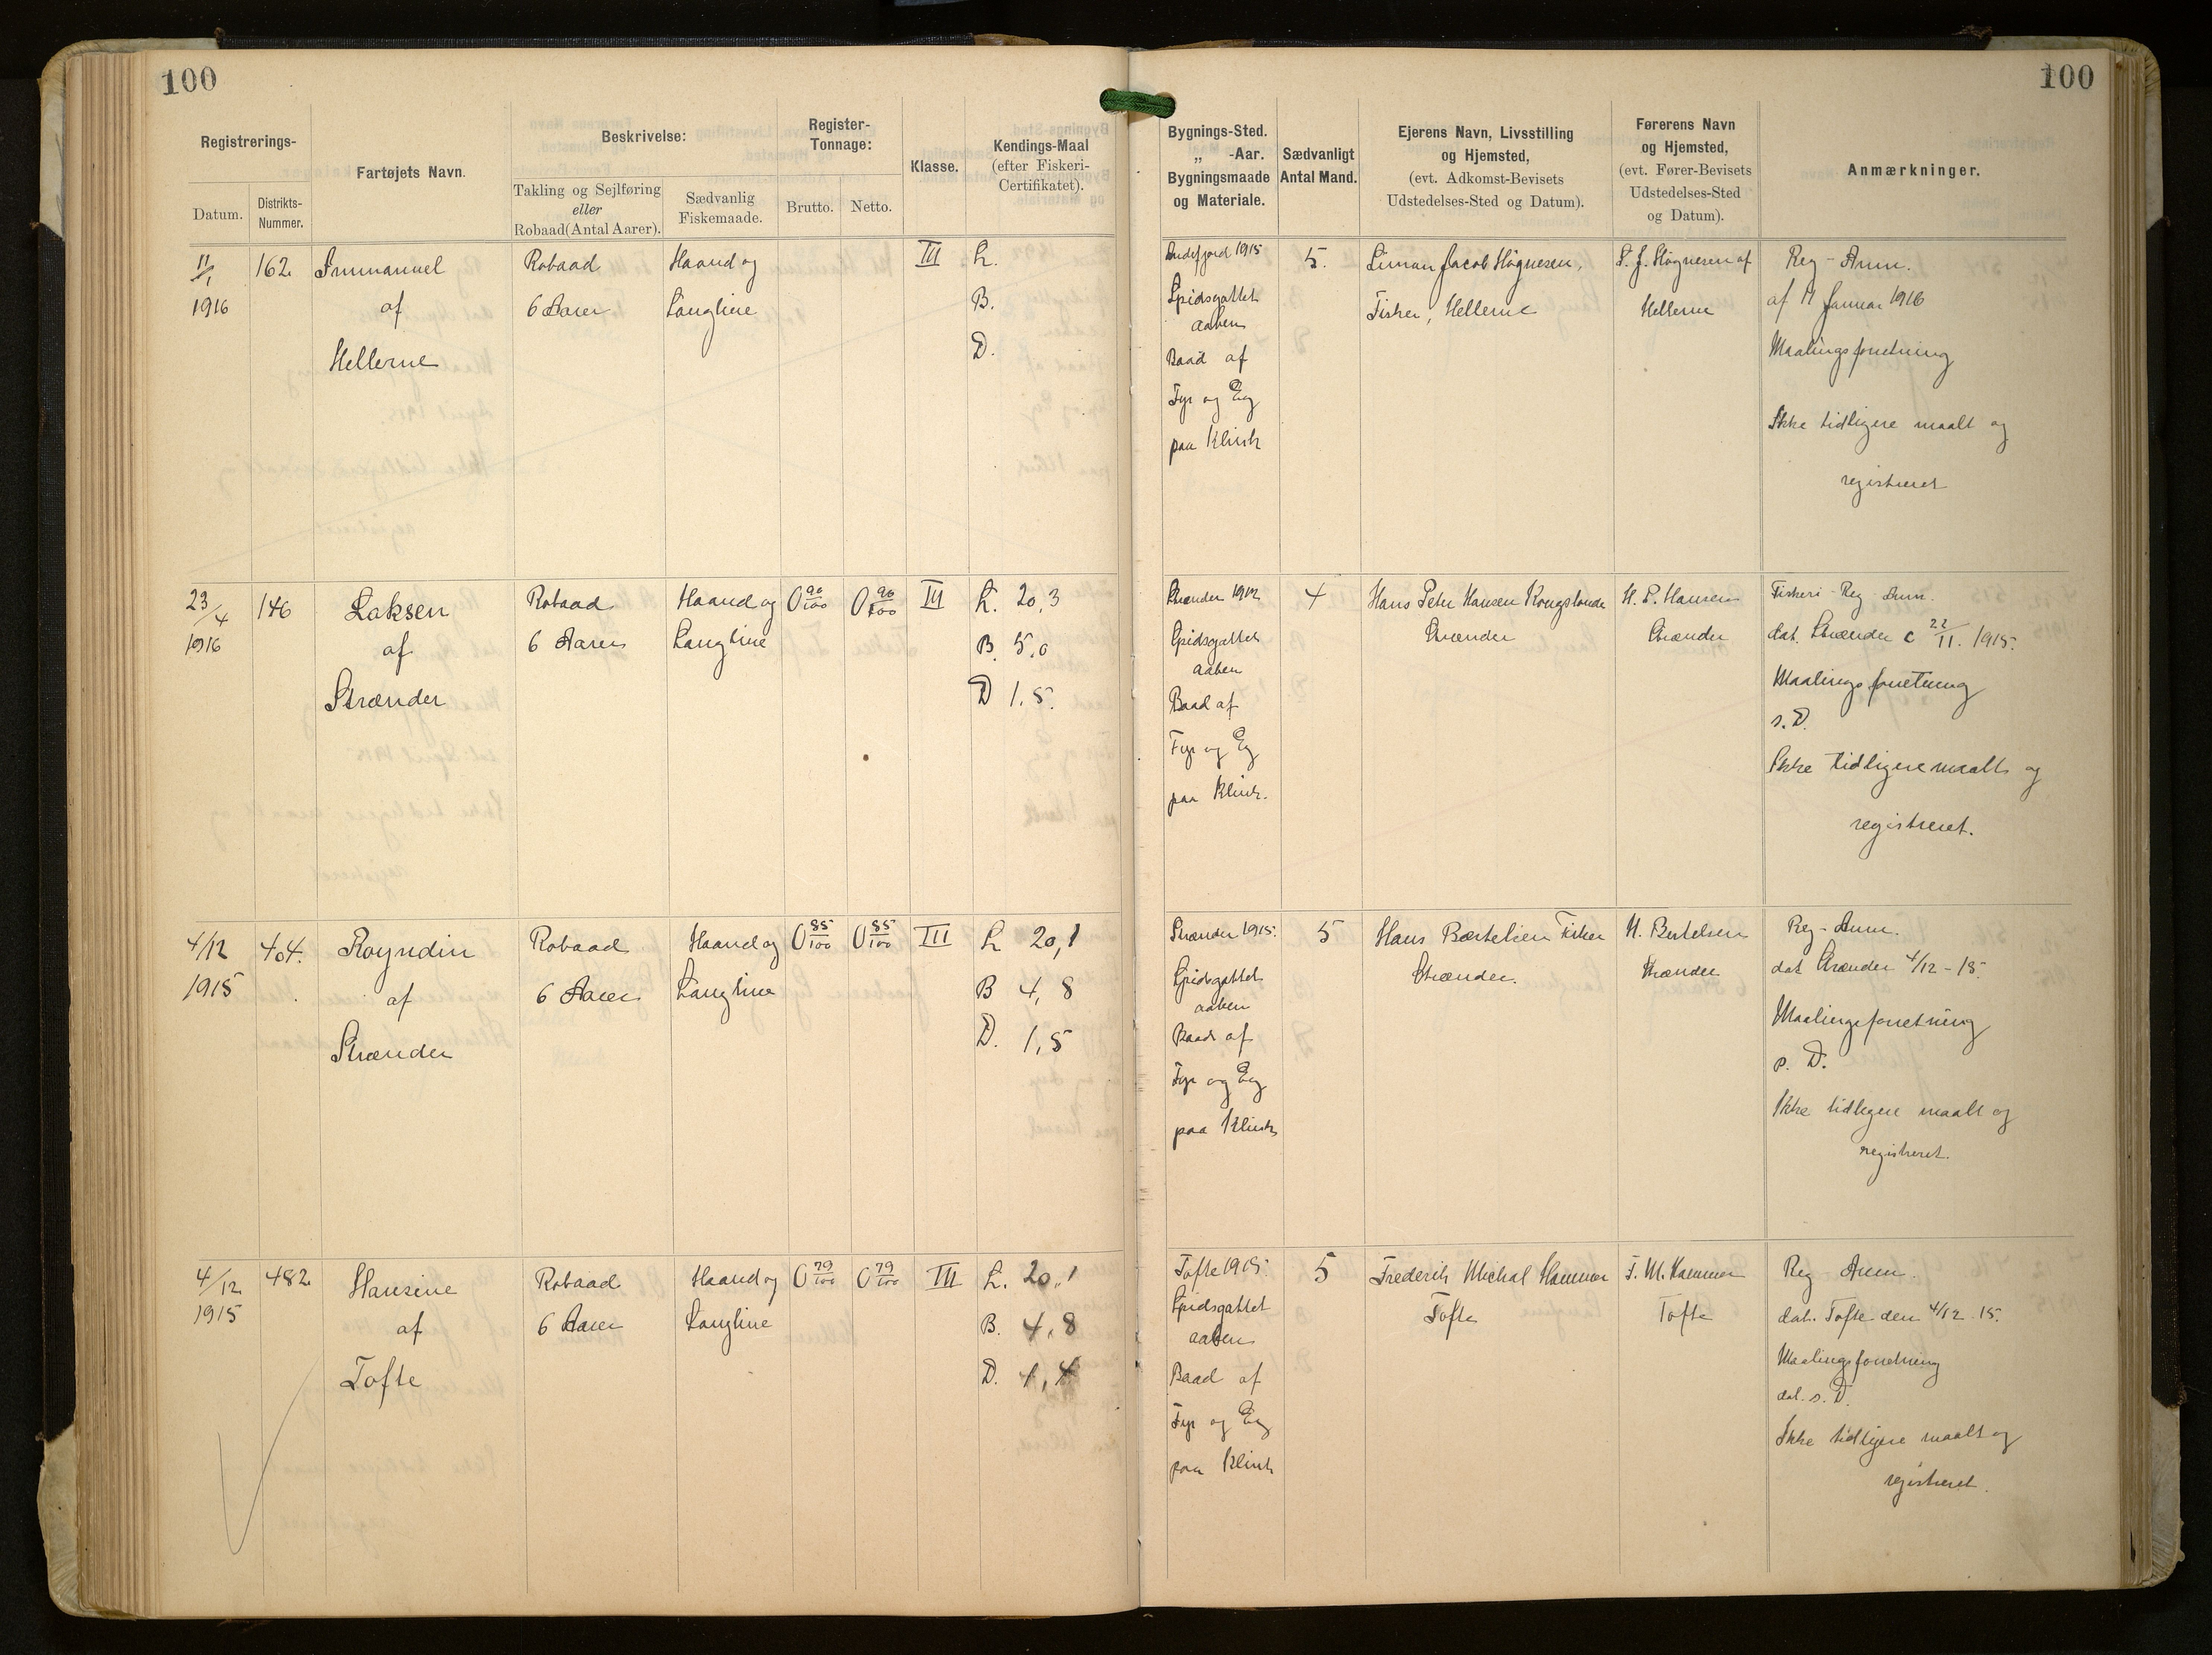 100
100
Registrerings-
Datum.
Distrikts-
Nummer.
Fartøjets Navn.
Beskrivelse:
Takling og Sejlføring
eller
Robaad (Antal Aarer).
Sædvanlig
Fiskemaade.
Register-
Tonnage:
Brutto.
Netto.
Klasse.
Kendings-Maal
(efter Fiskeri-
Certifikatet).
Bygnings-Sted.
„ -Aar.
Bygningsmaade
og Materiale.
Sædvanligt
Antal Mand.
Ejerens Navn, Livsstilling
og Hjemsted,
(evt. Adkomst-Bevisets
Udstedelses-Sted og Datum).
Førerens Navn
og Hjemsted,
(evt. Fører-Bevisets
Udstedelses-Sted
og Datum).
Anmærkninger.
11/1
1916
162
Immanuel
af
Hellerne
Robaad
6 Aarer
Haand og
Langline
III
L.
B.
D.
1915
Spidsgattet
aaben
Baad af
Fyr og Eg
paa Klink
5.
Simun Jacob Høgnesen,
Fisker, Hellerne
S. J. Høgnesen af
Hellerne
Reg - Anm.
af 11 Januar 1916
Maalingsforretning
Ikke tidligere maalt og
registreret
23/4
1916
146
Laksen
af
Strænder
Robaad
6 Aarer
Haand og
Langline
0 90/100
0 90/100
III
L. 20,3
B. 5,0
D 1,5.
Strænder 1912
Spidsgattet
aaben
Baad af
Fyr og Eg
paa Klink.
4
Hans Peter Hansen
Strænder
H. P. Hansen
Strænder
Fiskeri - Reg - Anm.
dat. Strænder 22/11. 1915.
Maalingsforretning
s. D.
Ikke tidligere maalt og
registreret.
4/12
1915
404.
Royndin
af
Strænder
Robaad
6 Aarer
Haand og
Langline
0 85/100
0 85/100
III
L 20,1
B 4,8
D. 1,5
Strænder 1915.
Spidsgattet
aaben
Baad af
Fyr og Eg
paa Klink
5
Hans Bertelsen Fisker
Strænder.
H. Bertelsen
Strænder
Reg - Anm.
dat Strænder 4/12 - 15.
Maalingsforretning
s. D.
Ikke tidligere maalt og
registreret.
4/12
1915
482
Hansine
af
Tofte
Robaad
6 Aarer
Haand og
Langline
0 79/100
0 79/100
III
L. 20,1
B. 4,8
D. 1,4
Tofte 1915.
Spidsgattet
aaben
Baad af
Fyr og Eg
paa Klink
5
Frederik Michal Hammer
Tofte
F. M. Hammer
Tofte
Reg - Anm.
dat. Tofte den 4/12 15.
Maalingsforretning
dat. s. D.
Ikke tidligere maalt og
registreret.